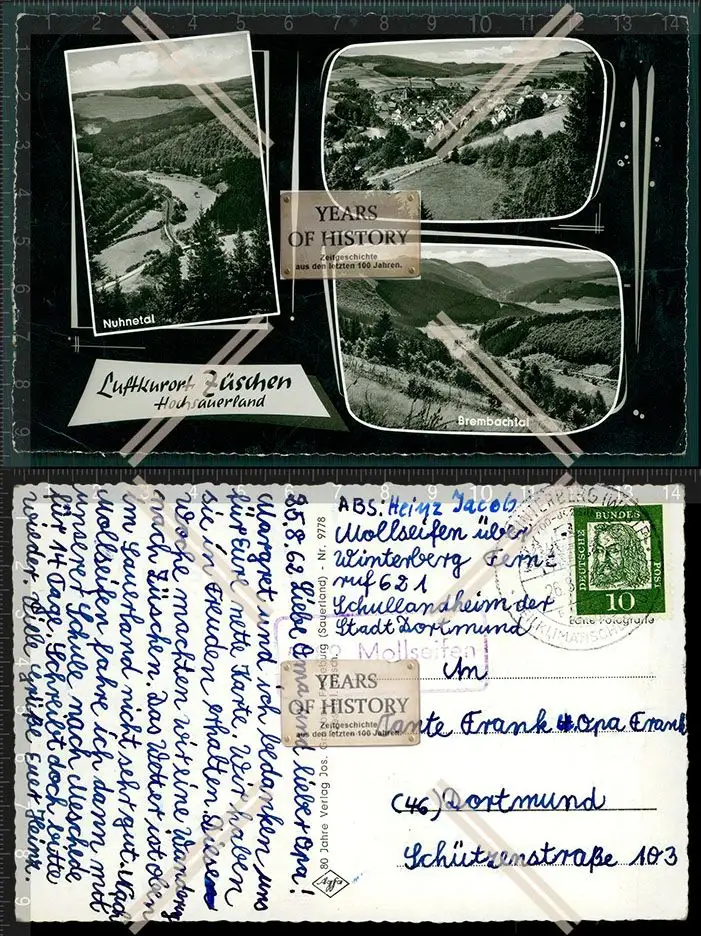 Nuhnetal
Luftkurort Züschen
Hochsauerland
Brembachtal
YEARS
OF HISTORY
Zeitgeschichte
aus den letzten 100 Jahren.
25.8.62 Liebe Oma und lieber Opa!
Margret und ich bedanken uns
für Eure nette Karte. Wir haben
sie in Freuden erhalten. Diese
Woche machten wir eine Wanderung
nach Züschen. Das Wetter ist oben
im Sauerland nicht sehr gut. Nach
Mollseifen fahre ich dann mit
unserer Schule nach Meschede
für 14 Tage. Schreibt doch bitte
wieder. Viele Grüße Euer Heinz.
80 Jahre Verlag Jos.
(Sauerland) - Nr. 9778
ABS. Heinz Jacob
Mollseifen über
Winterberg Fern
ruf 621
Schullandheim der
Stadt Dortmund
Mollseifen
DEUTSCHE
BUNDES
POST
10
Echte Fotografie
An
Tante Frank Opa Frank
(46) Dortmund
Schützenstraße 103
YEARS
OF HISTORY
Zeitgeschichte
aus den letzten 100 Jahren.